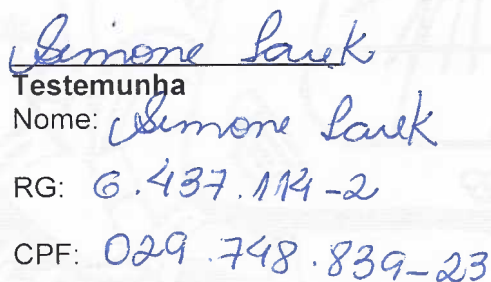 Simone Sauk
Testemunha
Nome: Simone Sauk
RG: 6.437.114-2
CPF: 029.748.839-23